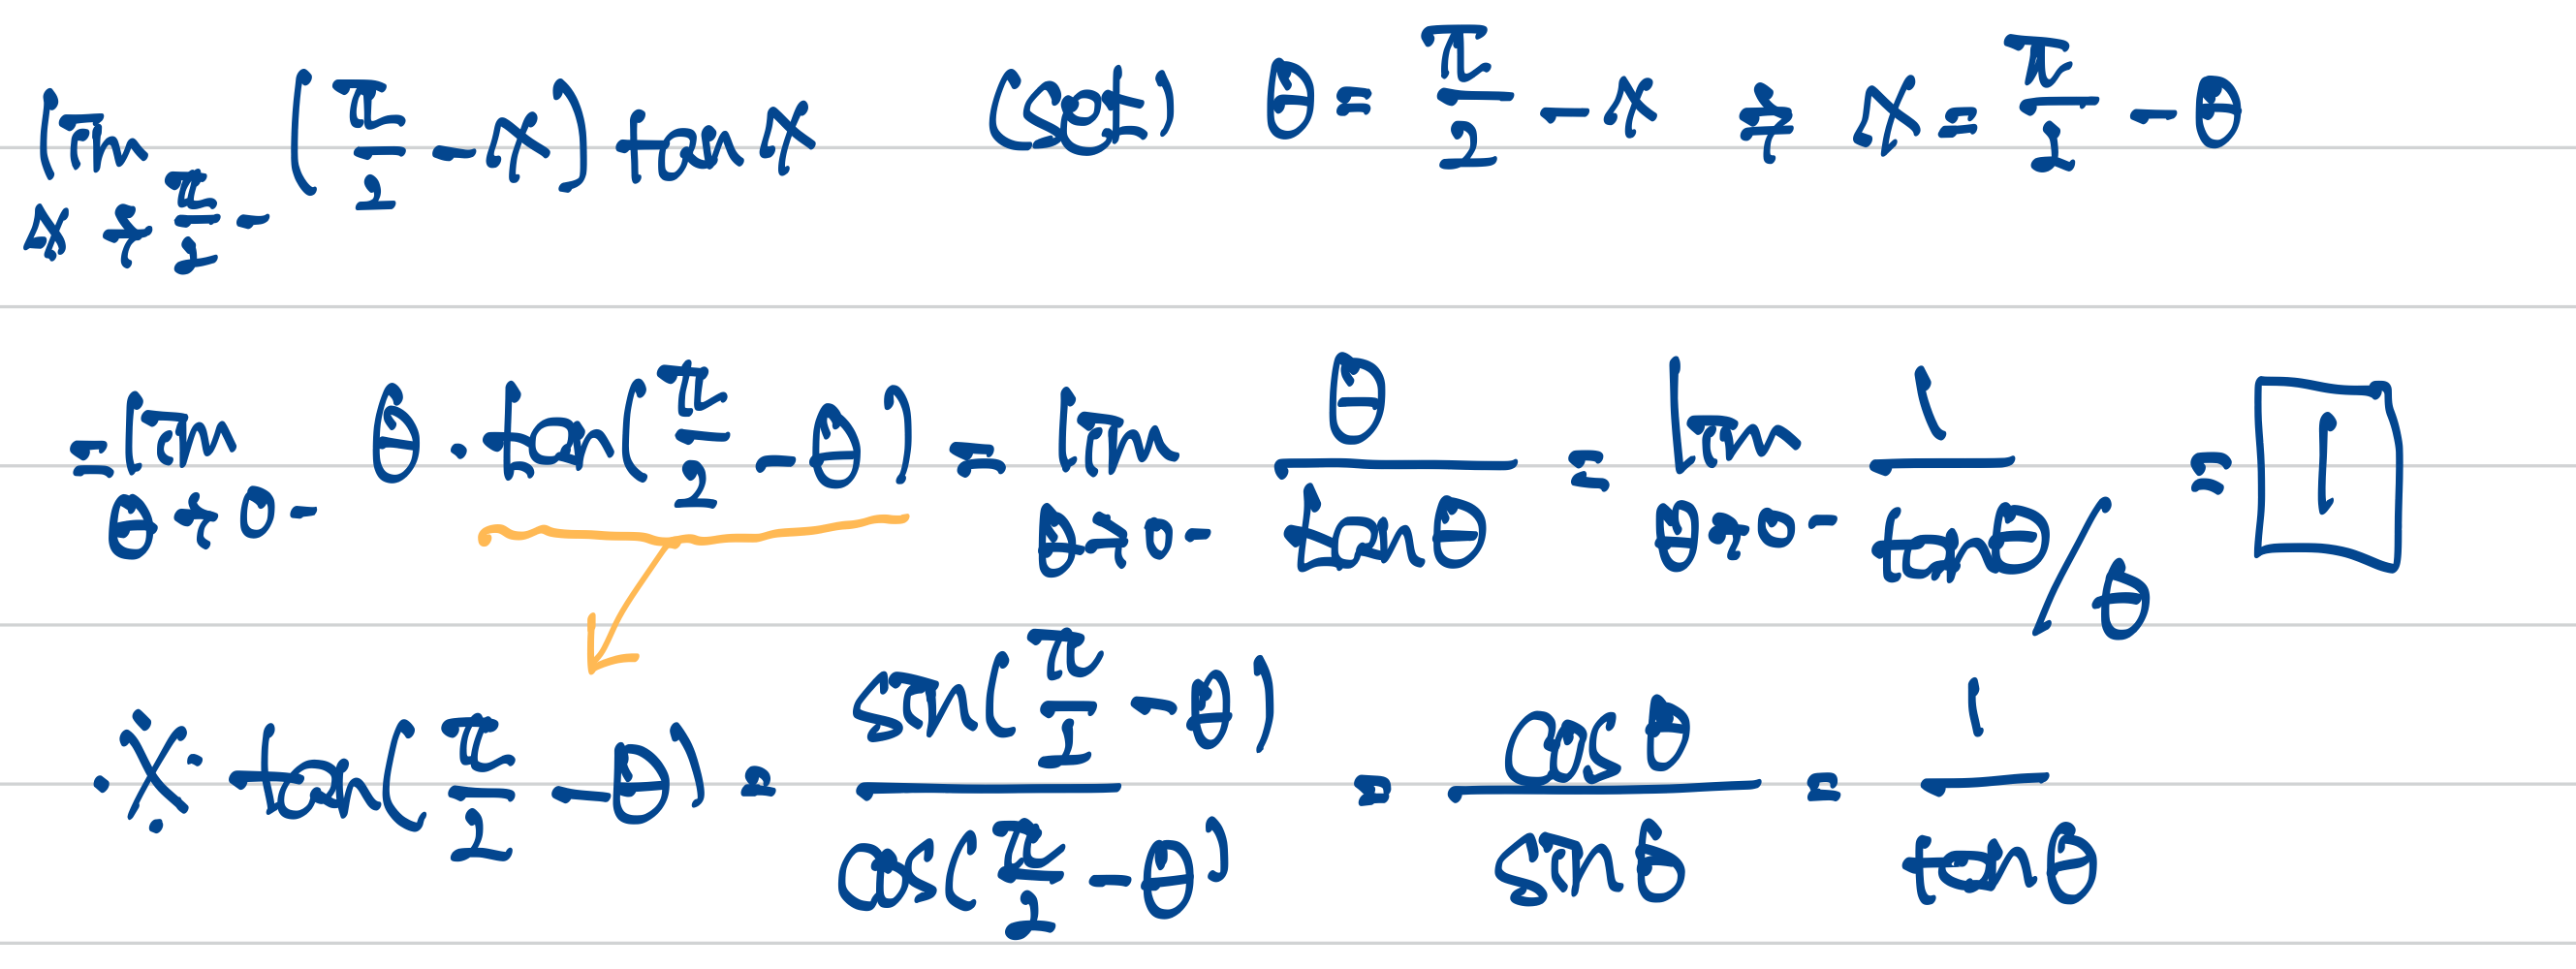 lim_{x→π/2-} (π/2 - x) tan x (set) θ = π/2 - x → x = π/2 - θ
= lim_{θ→0-} θ · tan(π/2 - θ) = lim_{θ→0-} θ/tanθ = lim_{θ→0-} 1/(tanθ/θ) = 1
※ tan(π/2 - θ) = sin(π/2 - θ)/cos(π/2 - θ) = cosθ/sinθ = 1/tanθ